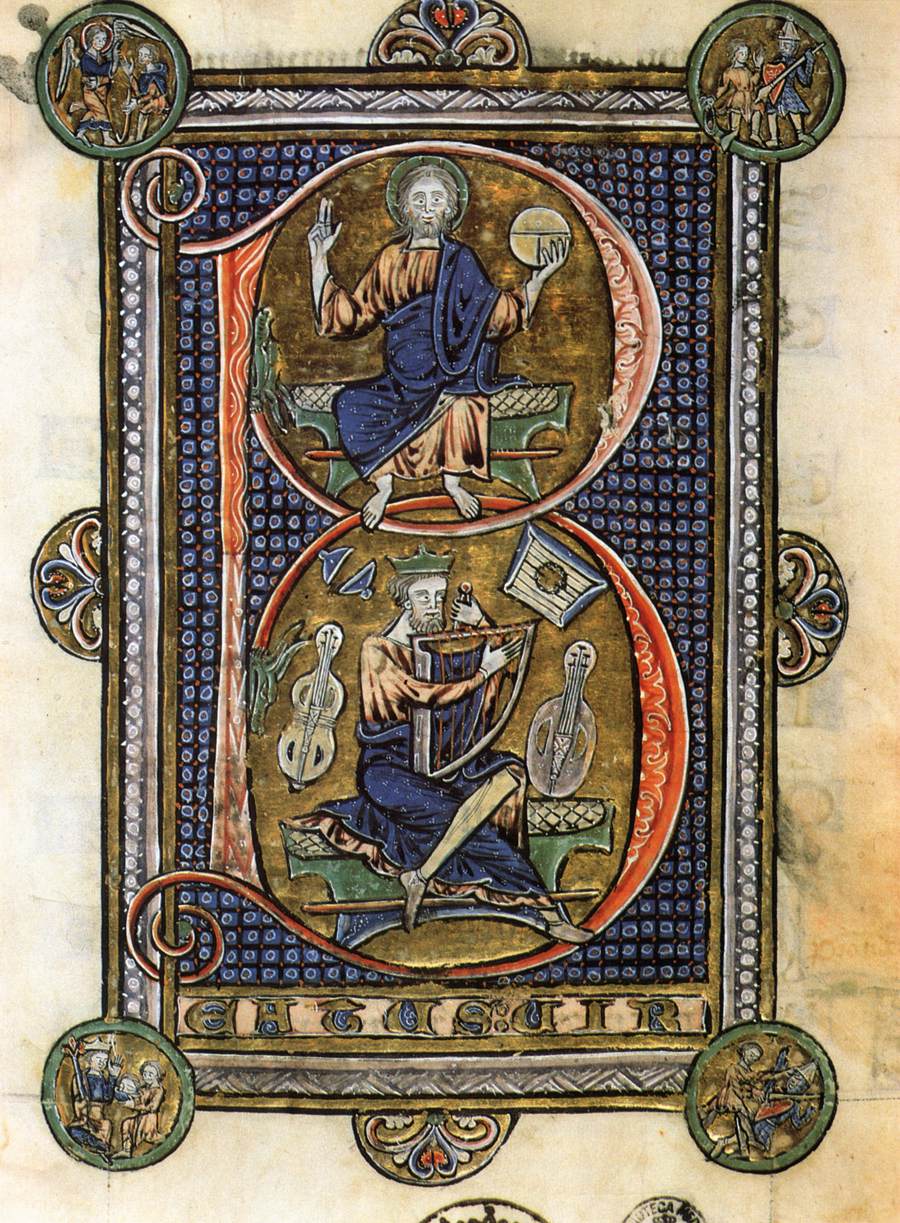 B
EATUS:UIR